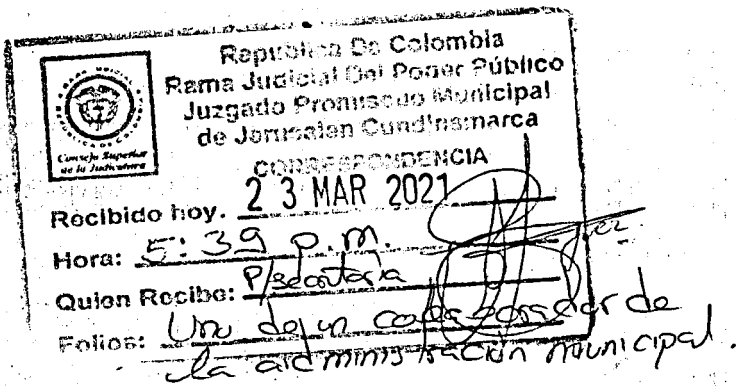 Republica De Colombia
Rama Judicial Del Poder Público
Juzgado Promiscuo Municipal
de Jerusalen Cundinamarca
Consejo Superior
de la Judicatura
CORRESPONDENCIA
Recibido hoy. 23 MAR 2021
Hora: 5:39 p.m.
Quien Recibe: P/secretaria
Folios: Uno de
la administración municipal.